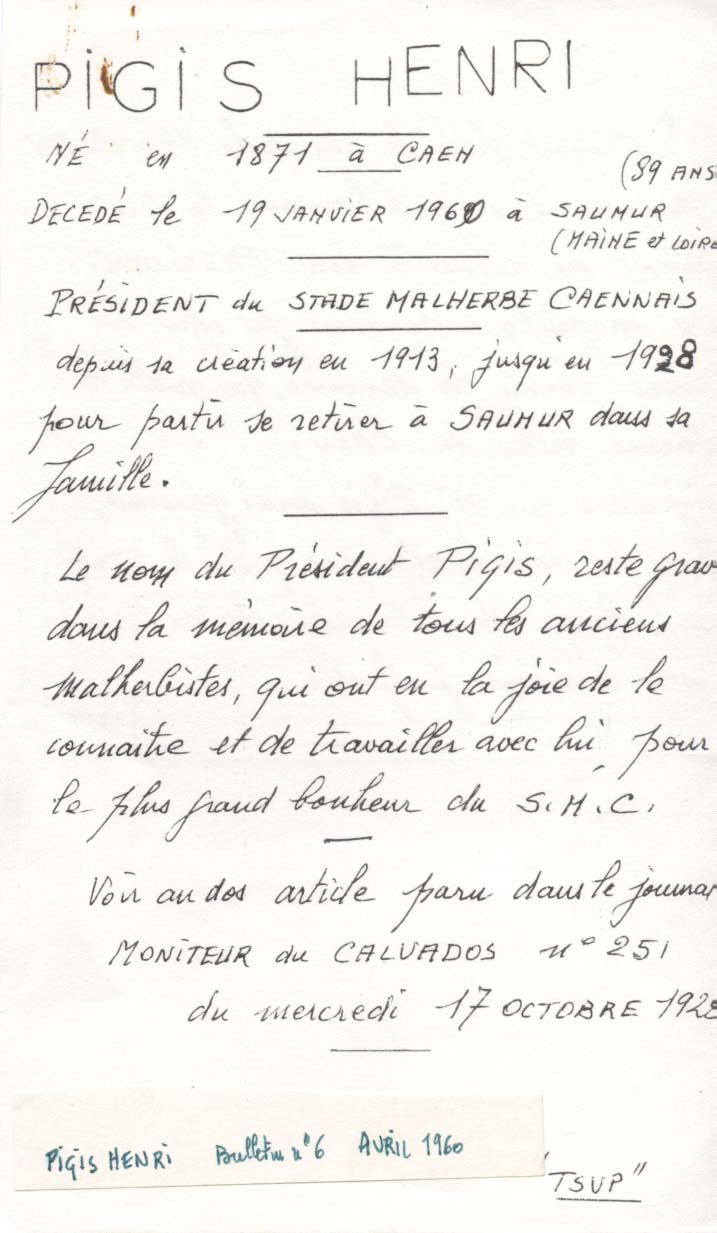 PIGIS HENRI
NÉ en 1871 à CAEN
(89 ANS
DECEDÉ le 19 JANVIER 1960 à SAUMUR
(MAINE et LOIRE
PRÉSIDENT du STADE MALHERBE CAENNAIS
depuis sa création en 1913, jusqu'en 1928
pour partir se retirer à SAUMUR dans sa
famille.
Le nom du Président PIGIS, reste grav
dans la mémoire de tous les anciens
malherbistes, qui ont eu la joie de le
connaitre et de travailler avec lui, pour
le plus grand bonheur du S.M.C.
Voir au dos article paru dans le journa
MONITEUR du CALVADOS n° 251
du mercredi 17 OCTOBRE 1928
PIGIS HENRI Bulletin n°6 AVRIL 1960
"TSVP"